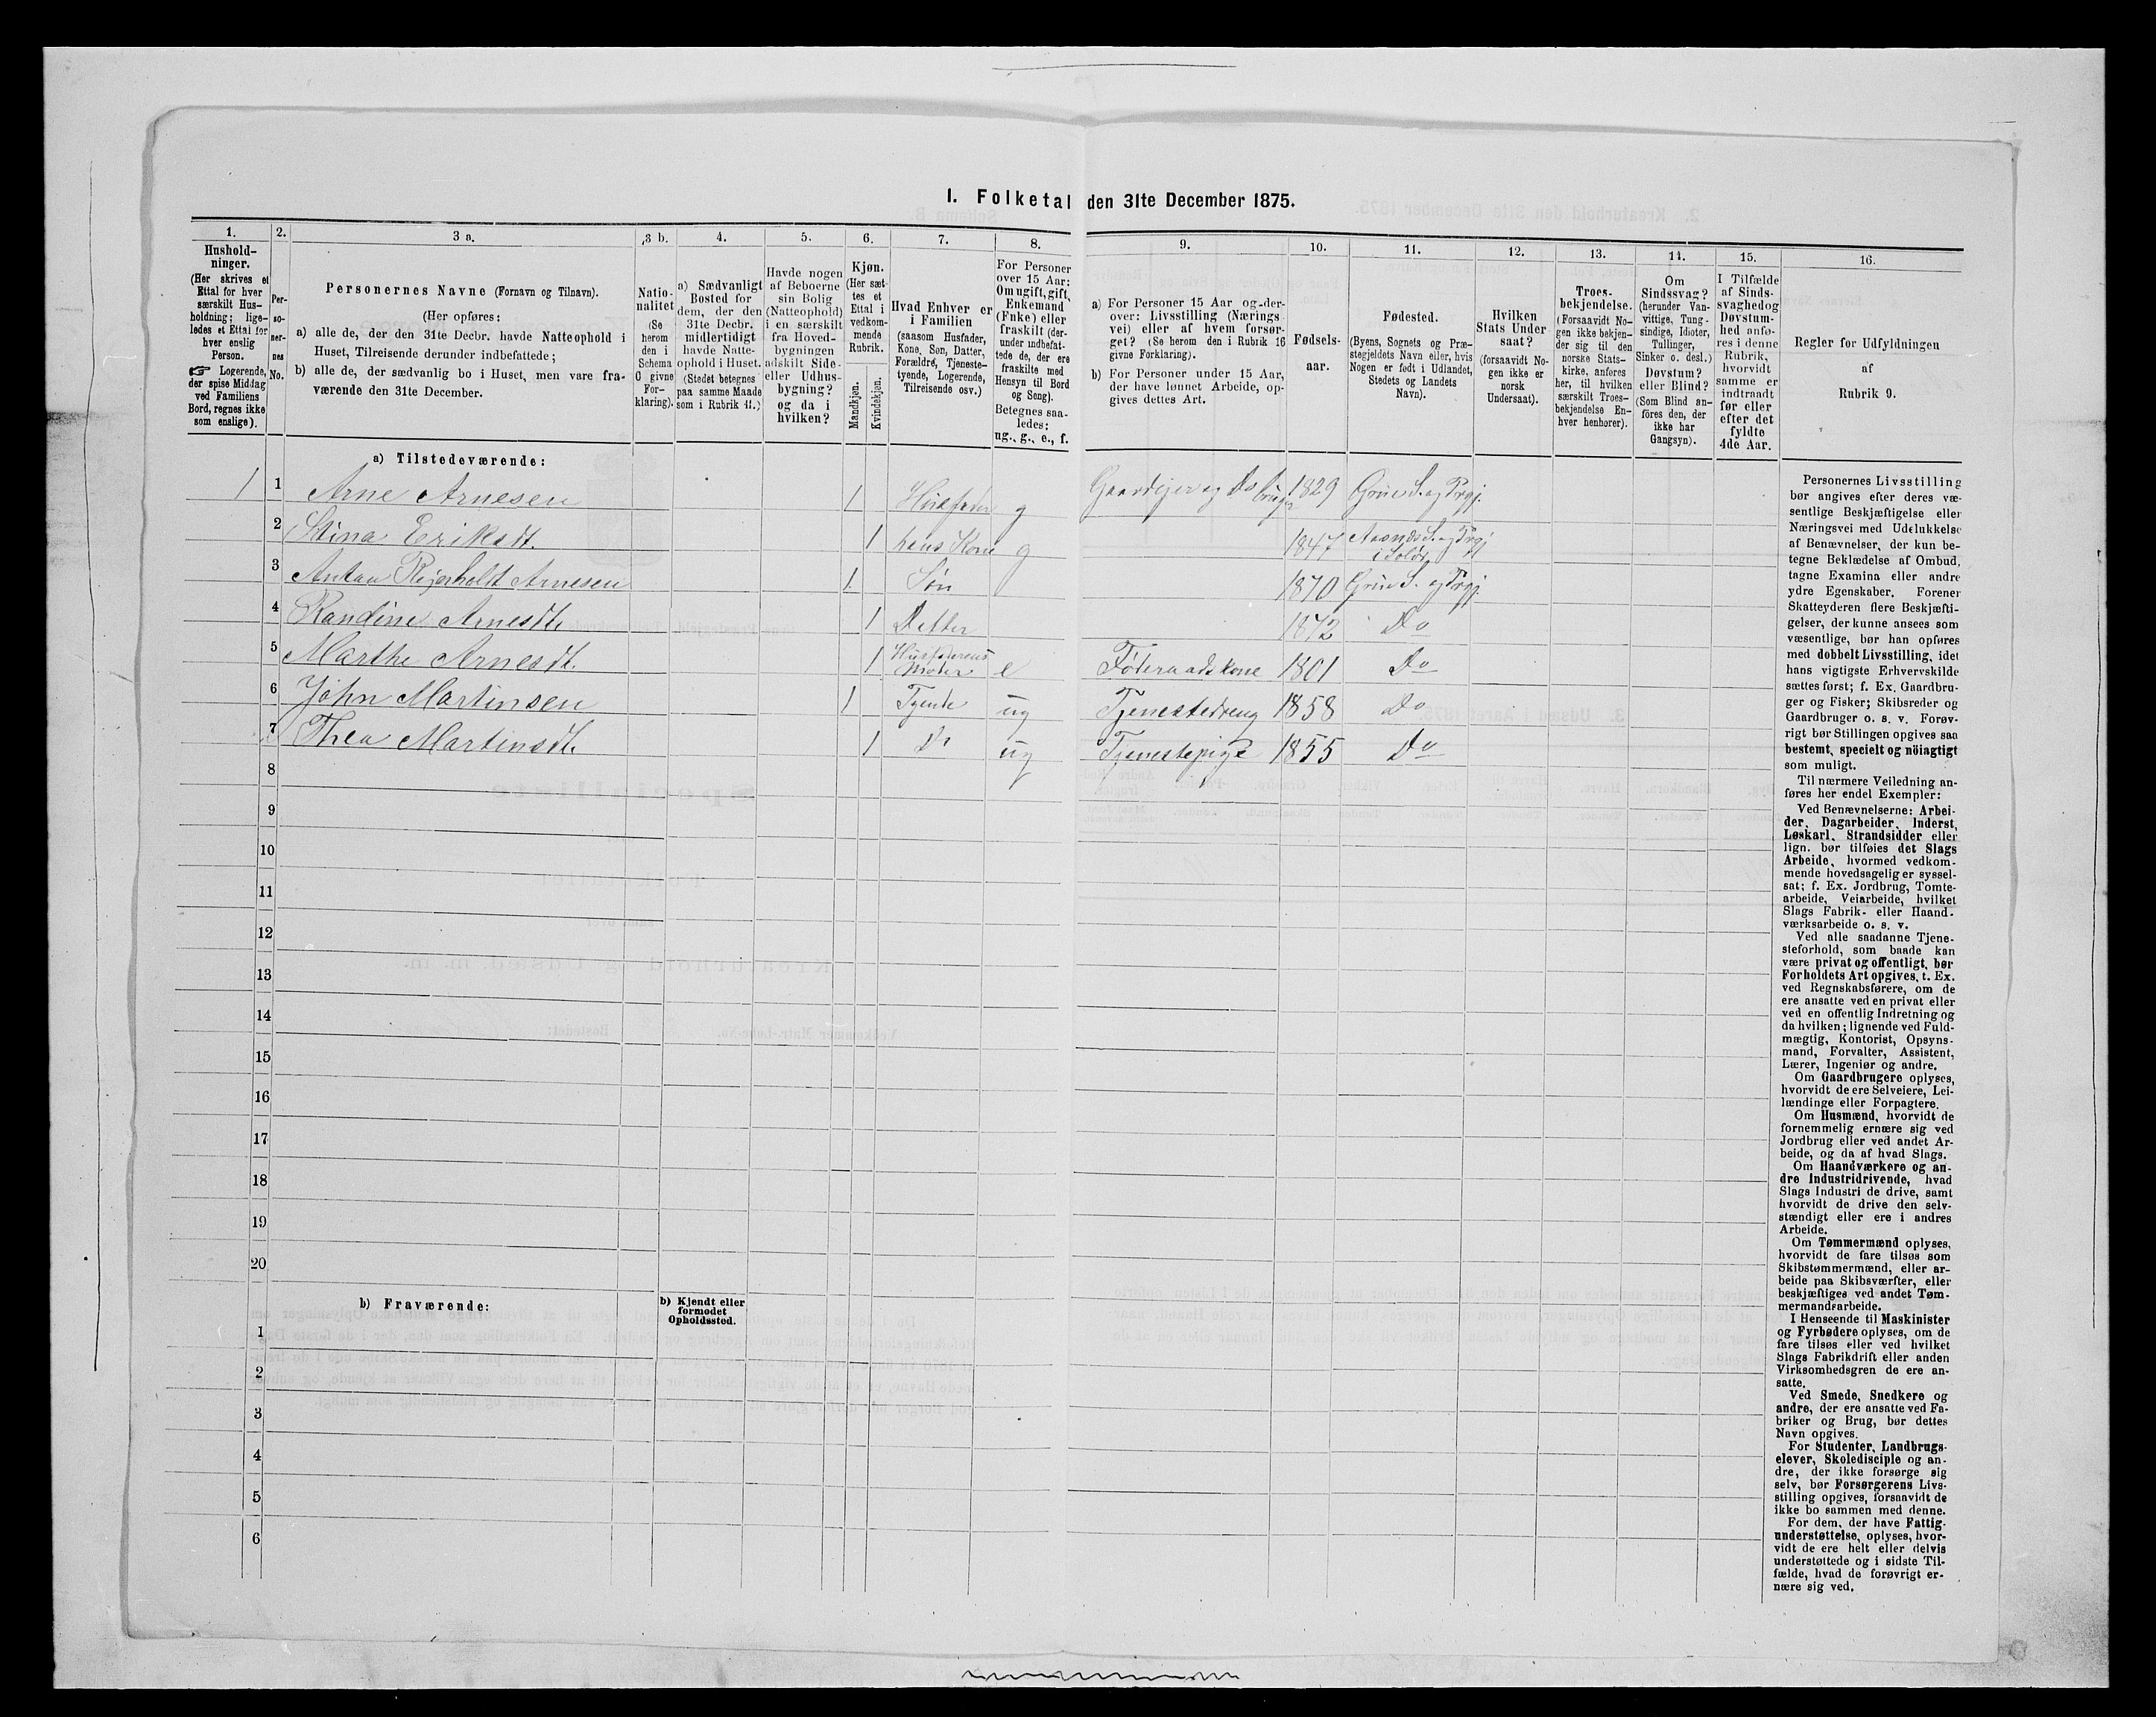 I. Folketal den 31te December 1875.
1.
Hushold-
ninger.
(Her skrives et
Ettal for hver
særskilt Hus-
holdning; lige-
ledes et Ettal for
hver enslig
Person.
☞ Logerende,
der spise Middag
ved Familiens
Bord, regnes ikke
som enslige).
2.
Per-
so-
ner-
nes
No.
3 a.
Personernes Navne (Fornavn og Tilnavn).
(Her opføres:
a) alle de, der den 31te Decbr. havde Natteophold i
Huset, Tilreisende derunder indbefattede;
b) alle de, der sædvanlig bo i Huset, men vare fra-
værende den 31te December.
3 b.
Natio-
nalitet
(Se
herom
den i
Schema
C givne
For-
klaring).
4.
a) Sædvanligt
Bosted for
dem, der den
31te Decbr.
midlertidigt
havde Natte-
ophold i Huset.
(Stedet betegnes
paa samme Maade
som i Rubrik 11.)
5.
Havde nogen
af Beboerne
sin Bolig
(Natteophold)
i en særskilt
fra Hoved-
bygningen
adskilt Side-
eller Udhus-
bygning?
og da i
hvilken?
6.
Kjøn.
(Her sæt-
tes et
Ettal i
vedkom-
mende
Rubrik.
Mandkjøn.
Kvindekjøn.
7.
Hvad Enhver er
i Familien
(saasom Husfader,
Kone, Søn, Datter,
Forældre, Tjeneste-
tyende, Logerende,
Tilreisende osv.)
8.
For Personer
over 15 Aar:
Om ugift, gift,
Enkemand
(Enke) eller
fraskilt (der-
under indbefat-
tede de, der ere
fraskilte med
Hensyn til Bord
og Seng).
Betegnes saa-
ledes:
ug., g., e., f.
9.
a) For Personer 15 Aar og der-
over: Livsstilling (Nærings-
vei) eller af hvem forsør-
get? (Se herom den i Rubrik 16
givne Forklaring).
b) For Personer under 15 Aar,
der have lønnet Arbeide, op-
gives dettes Art.
10.
Fødsels-
aar.
11.
Fødested.
(Byens, Sognets og Præ-
stegjeldets Navn eller, hvis
Nogen er født i Udlandet,
Stedets og Landets
Navn).
12.
Hvilken
Stats Under-
saat?
(forsaavidt No-
gen ikke er
norsk
Undersaat).
13.
Troes-
bekjendelse.
(Forsaavidt No-
gen ikke bekjen-
der sig til den
norske Stats-
kirke, anføres
her, til hvilken
særskilt Troes-
bekjendelse En-
hver henhører).
14.
Om
Sindssvag?
(herunder Van-
vittige, Tung-
sindige, Idioter,
Tullinger,
Sinker o. desl.)
Døvstum?
eller Blind?
(Som Blind an-
føres den, der
ikke har
Gangsyn).
15.
I Tilfælde
af Sinds-
svaghed og
Døvstum-
hed anfø-
res i denne
Rubrik,
hvorvidt
samme er
indtraadt
før eller
efter det
fyldte
4de Aar.
16.
Regler for Udfyldningen
af
Rubrik 9.
a) Tilstedeværende:
1 1 Arne Arnesen 1 Husfader g Gaardejer og Do bruger 1829 Grue S. og Prgj.
2 Stina Eriksdt. 1 hans Kone g 1847 Aasnæs S. og Prgj i Solør
3 Anton Arnesen 1 Søn 1870 Grue S. og Prgj.
4 Randine Arnesdt. 1 Datter 1872 Do
5 Marthe Arnesdt. 1 Husfaderens Moder e Føderaadskone 1801 Do
6 John Martinsen 1 Tyende ug Tjenestedreng 1858 Do
7 Thea Martinsdt. 1 Do ug Tjenestepige 1855 Do
8
9
10
11
12
13
14
15
16
17
18
19
20
b) Fraværende:
b) Kjendt eller
formodet
Opholdssted.
1
2
3
4
5
6
Personernes Livsstilling
bør angives efter deres væ-
sentlige Beskjæftigelse eller
Næringsvei med Udelukkelse
af Benævnelser, der kun be-
tegne Beklædelse af Ombud,
tagne Examina eller andre
ydre Egenskaber. Forener
Skatteyderen flere Beskjæfti-
gelser, der kunne ansees som
væsentlige, bør han opføres
med dobbelt Livsstilling, idet
hans vigtigste Erhvervskilde
sættes først; f. Ex. Gaardbru-
ger og Fisker; Skibsreder og
Gaardbruger o. s. v. Forøv-
rigt bør Stillingen opgives saa
bestemt, specielt og nöiagtigt
som muligt.
Til nærmere Veiledning an-
føres her endel Exempler:
Ved Benævnelserne: Arbei-
der, Dagarbeider, Inderst,
Løskarl, Strandsidder eller
lign. bør tilføies det Slags
Arbeide, hvormed vedkom-
mende hovedsagelig er syssel-
sat; f. Ex. Jordbrug, Tomte-
arbeide, Veiarbeide, hvilket
Slags Fabrik- eller Haand-
værksarbeide o. s. v.
Ved alle saadanne Tjene-
steforhold, som baade kan
være privat og offentligt, bør
Forholdets Art opgives, t. Ex.
ved Regnskabsførere, om de
ere ansatte ved en privat eller
ved en offentlig Indretning og
da hvilken; lignende ved Fuld-
mægtig, Kontorist, Opsyns-
mand, Forvalter, Assistent,
Lærer, Ingeniør og andre.
Om Gaardbrugere oplyses,
hvorvidt de ere Selveiere, Lei-
lændinge eller Forpagtere.
Om Husmænd, hvorvidt de
fornemmelig ernære sig ved
Jordbrug eller ved andet Ar-
beide, og da af hvad Slags.
Om Haandværkere og an-
dre Industridrivende, hvad
Slags Industri de drive, samt
hvorvidt de drive den selv-
stændigt eller ere i andres
Arbeide.
Om Tømmermænd oplyses,
hvorvidt de fare tilsøs som
Skibstømmermænd, eller ar-
beide paa Skibsværfter, eller
beskjæftiges ved andet Tøm-
mermandsarbeide.
I Henseende til Maskinister
og Fyrbødere oplyses, om de
fare tilsøs eller ved hvilket
Slags Fabrikdrift eller anden
Virksomhedsgren de ere an-
satte.
Ved Smede, Snedkere og
andre, der ere ansatte ved Fa-
briker og Brug, bør dettes
Navn opgives.
For Studenter, Landbrugs-
elever, Skoledisciple og an-
dre, der ikke forsørge sig
selv, bør Forsørgerens Livs-
stilling opgives, forsaavidt de
ikke bo sammen med denne.
For dem, der have Fattig-
understøttelse, oplyses, hvor-
vidt de ere helt eller delvis
understøttede og i sidste Til-
fælde, hvad de forøvrigt er-
nære sig ved.